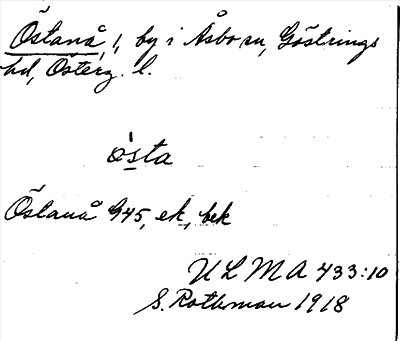 Östanå, !, by i Åsbo sn, Göstrings
hd, Österg. l.
østa
Östanå 945, ek, bek
ULMA 433:10
S. Rothman 1918